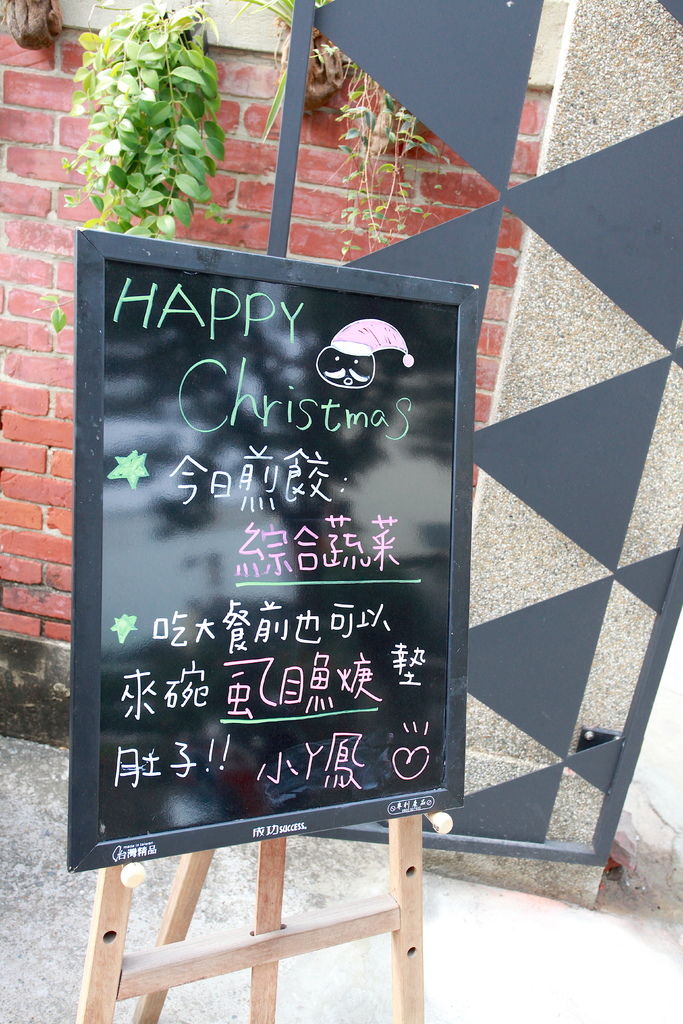 HAPPY
Christmas
今日煎餃:
綜合蔬菜
吃大餐前也可以
來碗虱目魚焿墊
肚子!! 小丫鳳
成功 SUCCESS.
made in taiwan
台灣精品
專利產品